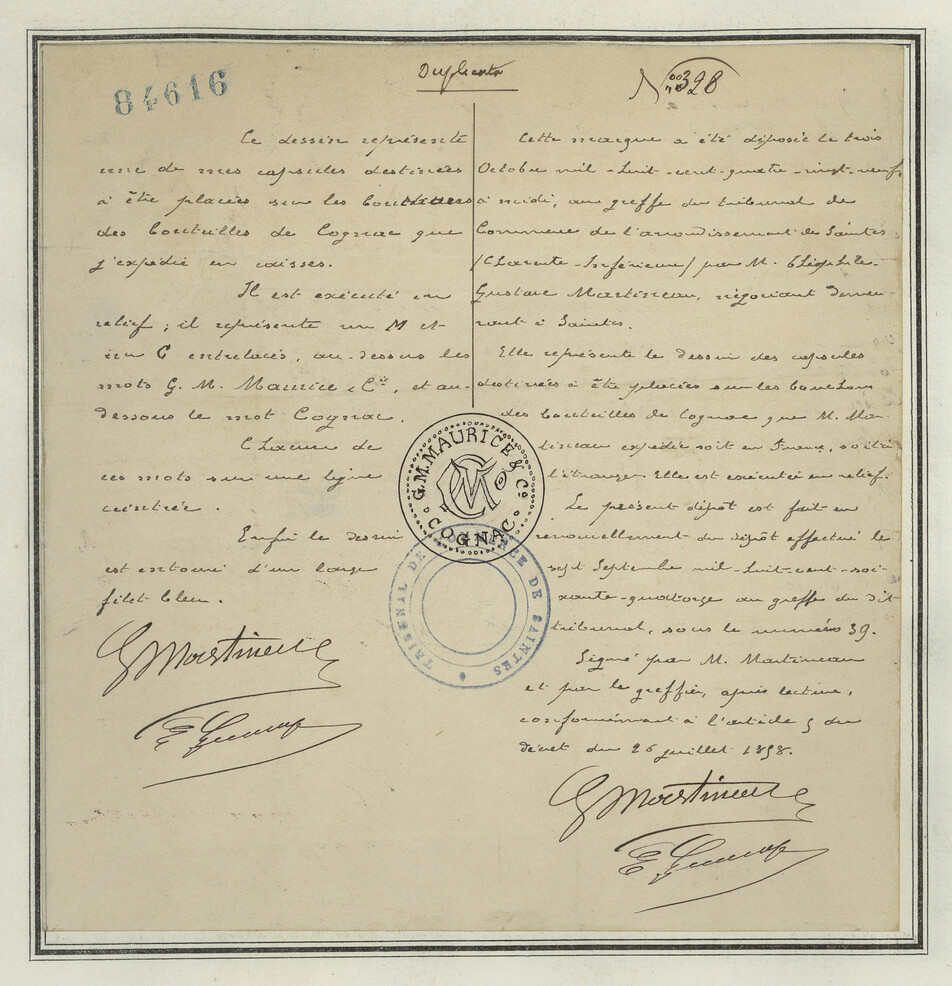 84616
Duplicata
Nº 328
Ce dessin représente
une de mes capsules destinées
à être placées sur les bouchons
des bouteilles de Cognac que
j'expédie en caisses.
Il est exécuté en
relief ; il représente un M et
un C entrelacés, au-dessus les
mots G. M. Maurice & Cie, et au-
dessous le mot Cognac.
Chacun de
ces mots sur une ligne
ceintrée.
Enfin le dessin
est entouré d'un large
filet bleu.
G Martineau
Cette marque a été déposée le trois
Octobre mil-huit-cent-quatre-vingt-neuf
à midi, au greffe du tribunal de
Commerce de l'arrondissement de Saintes
/Charente-Inférieure/ par M. Théophile-
Gustave Martineau, négociant demeu-
rant à Saintes.
Elle représente le dessin des capsules
destinées à être placées sur les bouchons
des bouteilles de Cognac que M. Mar-
tineau expédie soit en France, soit à
l'étranger. Elle est exécutée en relief.
Le présent dépôt est fait en
renouvellement du dépôt effectué le
sept Septembre mil-huit-cent-soi-
xante-quatorze au greffe du dit
tribunal, sous le numéro 39.
Signé par M. Martineau
et par le greffier, après lecture,
conformément à l'article 5 du
décret du 26 juillet 1858.
G Martineau
G. M. MAURICE & Co
MC
COGNAC
TRIBUNAL DE COMMERCE DE SAINTES